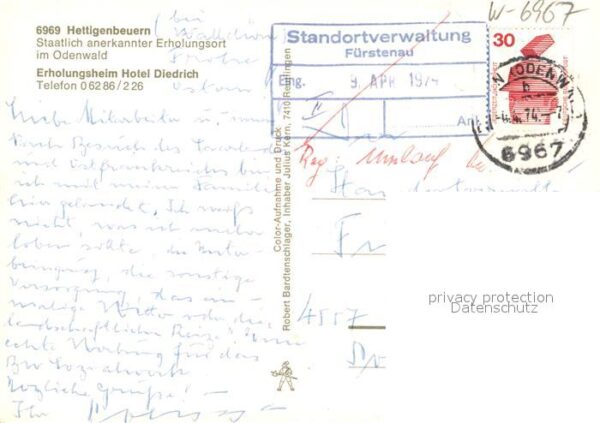 6969 Hettigenbeuern
Staatlich anerkannter Erholungsort
im Odenwald
Erholungsheim Hotel Diedrich
Telefon 0 62 86 / 2 26
(bei
Walldürn)
Frohe
Ostern
W-6967
Standortverwaltung
Fürstenau
Eing. 9. APR. 1974
II
Anl
30
(ODENW
b
74
6967
Reg: Umlauf
Standortverwaltung
4557
Color-Aufnahme und Druck
Robert Bardtenschlager, Inhaber Julius Kern, 7410 Reutlingen
Liebe Mitarbeiter
nach Besuch des
und Ostfrankreichs bin
ich mit meiner Familie
hier gelandet. Ich weiß
nicht, was ich mehr
loben sollte, die Unter-
bringung, die sonstige
Versorgung, das ein-
malige Wetter oder die
landschaftlichen Reize! Eine
echte Werbung für das
Bw Sozialwerk
Herzliche Grüße!
Ihr
privacy protection
Datenschutz